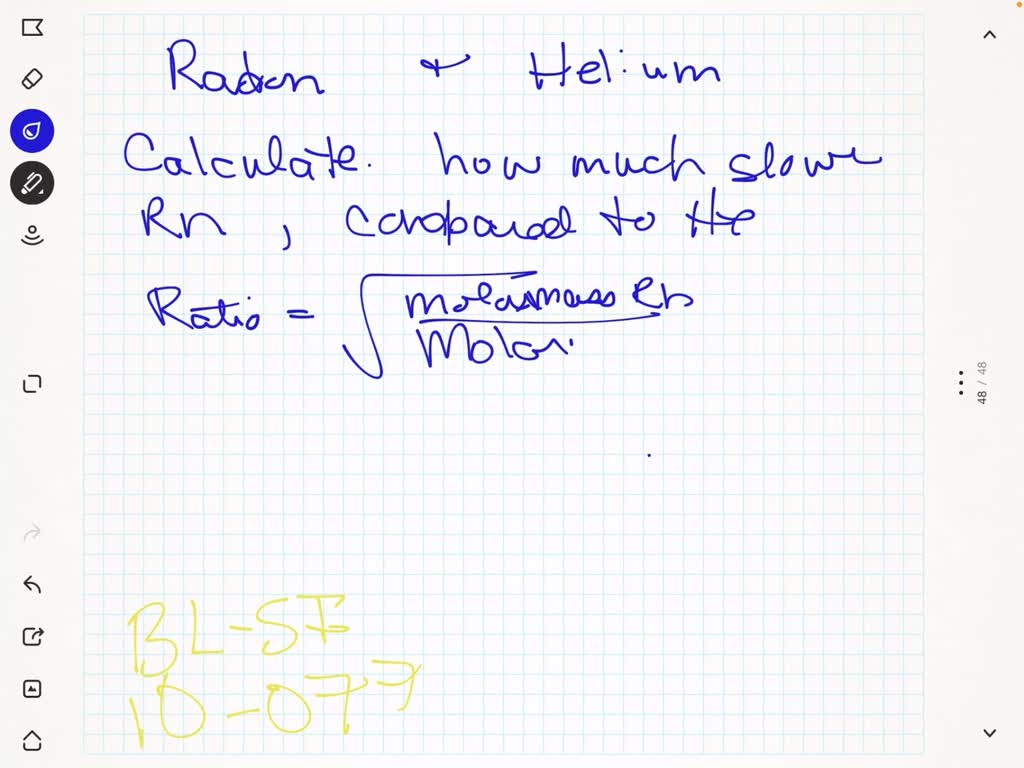 Radon & Helium
Calculate. how much slower
Rn, compared to He
Ratio = √ molarmass Rn
Molar
BL-SF
10-077
48 / 48